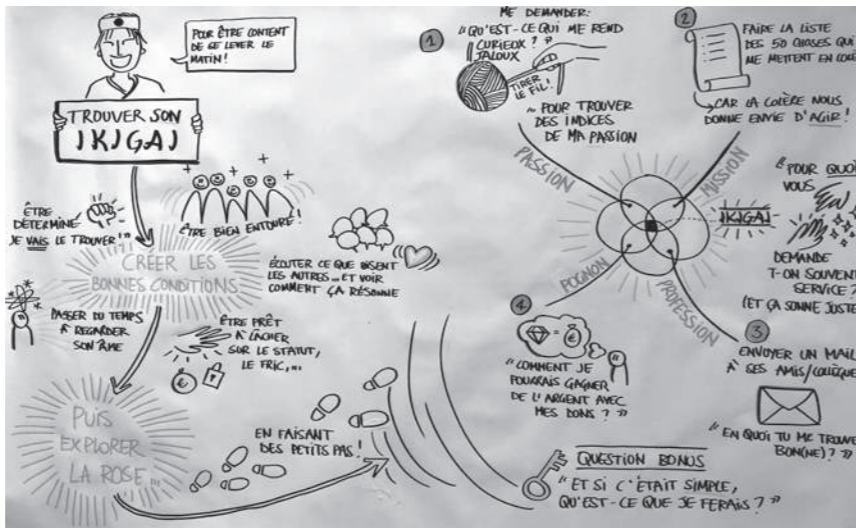 POUR ÊTRE CONTENT
DE SE LEVER LE
MATIN!
TROUVER SON
IKIGAI
ÊTRE
DÉTERMINÉ
JE VAIS LE TROUVER!"
ÊTRE BIEN ENTOURÉ!
CRÉER LES
BONNES CONDITIONS
ÉCOUTER CE QUE DISENT
LES AUTRES... ET VOIR
COMMENT ÇA RÉSONNE
PASSER DU TEMPS
À REGARDER
SON ÂME
ÊTRE PRÊT
À LÂCHER
SUR LE STATUT,
LE FRIC,...
€
PUIS
EXPLORER
LA ROSE...
EN FAISANT
DES PETITS PAS!
ME DEMANDER:
1
"QU'EST-CE QUI ME REND
CURIEUX?"
JALOUX
TIRER
LE FIL!
~ POUR TROUVER
DES INDICES
DE MA PASSION
2
FAIRE LA LISTE
DES 50 CHOSES QUI
ME METTENT EN
CAR LA COLÈRE NOUS
DONNE ENVIE D'AGIR!
PASSION
MISSION
POGNON
PROFESSION
IKIGAI
"POUR QUOI
VOUS
DEMANDE
T-ON SOUVENT
SERVICE?
(ET ÇA SONNE JUSTE
3
ENVOYER UN MAIL
À SES AMIS/
"EN QUOI TU ME TROUVE
BON(NE)?"
4
= €
"COMMENT JE
POURRAIS GAGNER
DE L'ARGENT AVEC
MES DONS?"
QUESTION BONUS
"ET SI C'ÉTAIT SIMPLE,
QU'EST-CE QUE JE FERAIS?"